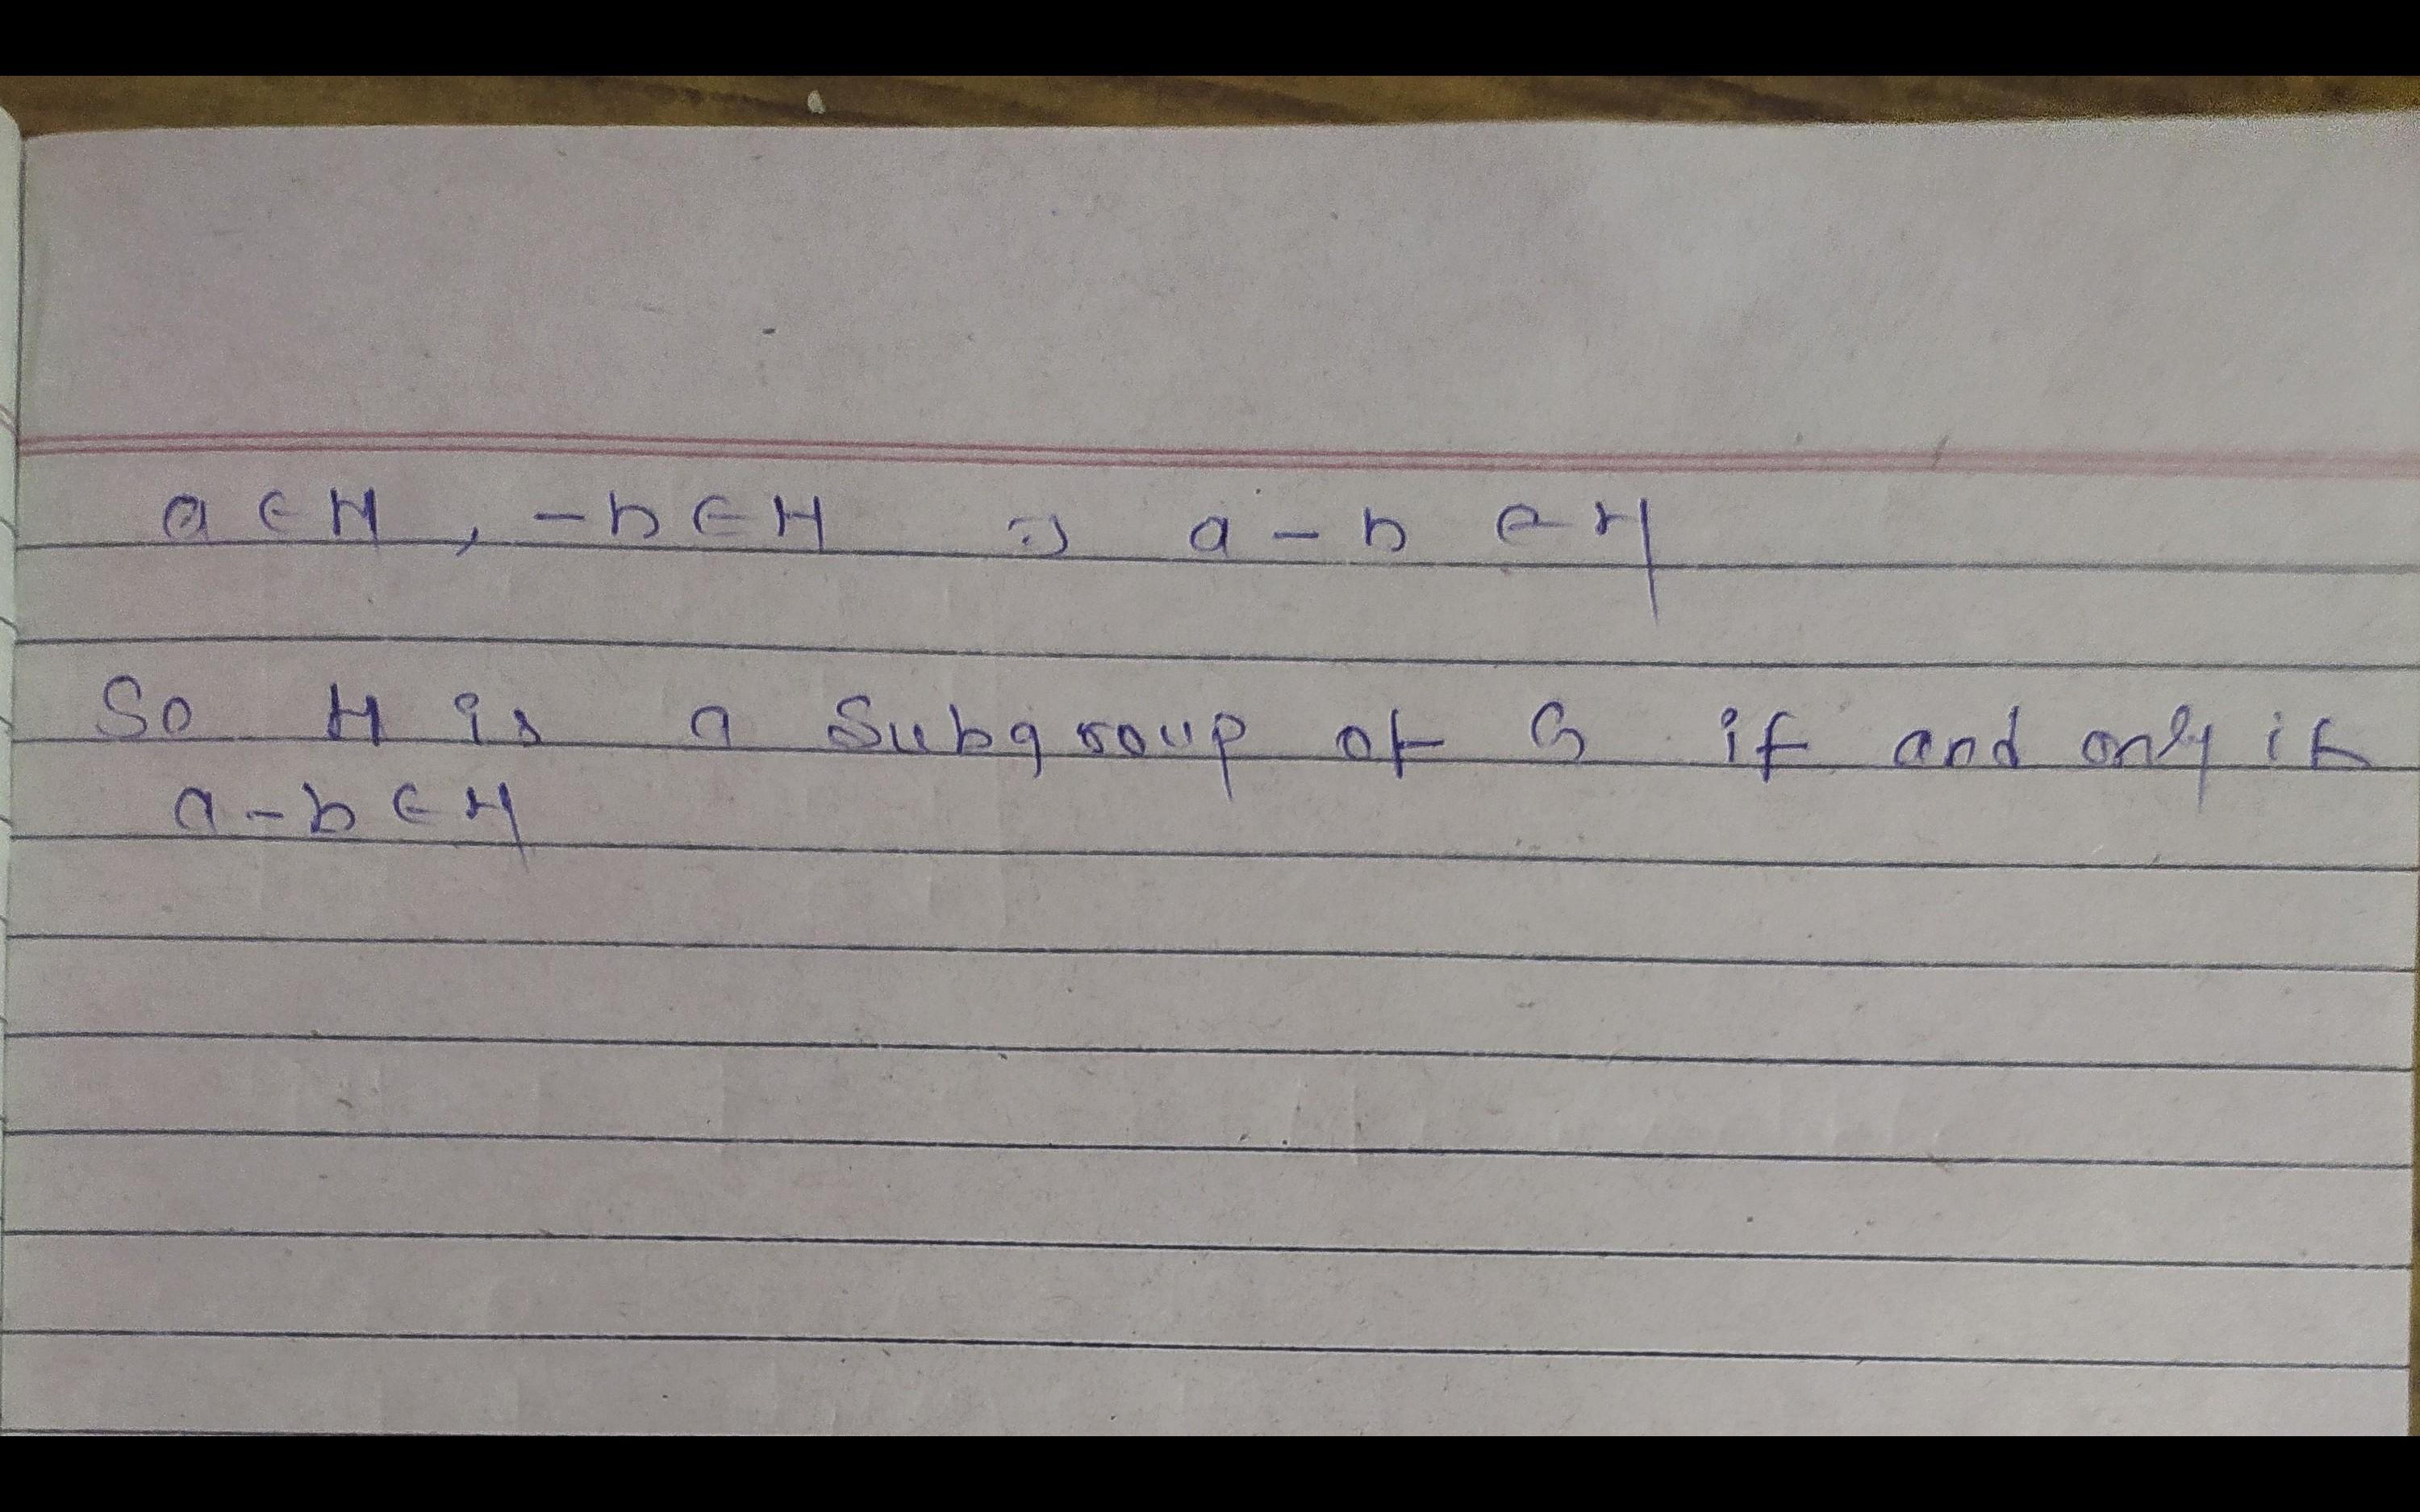 a ∈ H , -b ∈ H ⇒ a - b ∈ H
So H is a Subgroup of G if and only if
a - b ∈ H